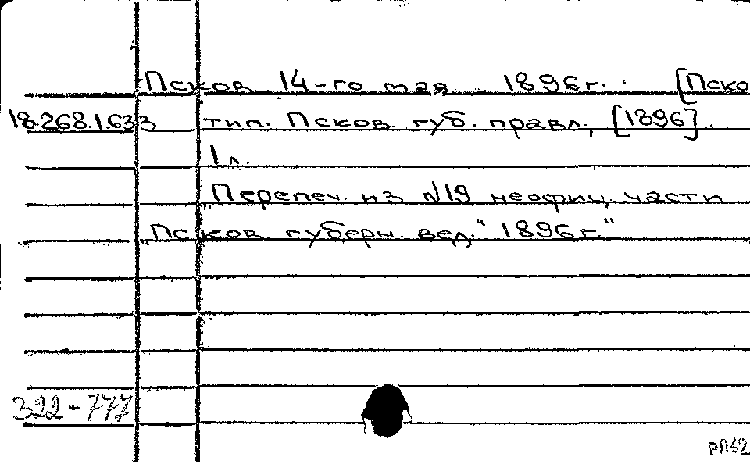 Псков 14-го мая 1896г. [Пско
18.268.1.633 тип. Псков губ. правл., [1896].
1 л.
Перепеч. из №19 неофиц. части
„Псков губерн. вед." 1896г."
322-777